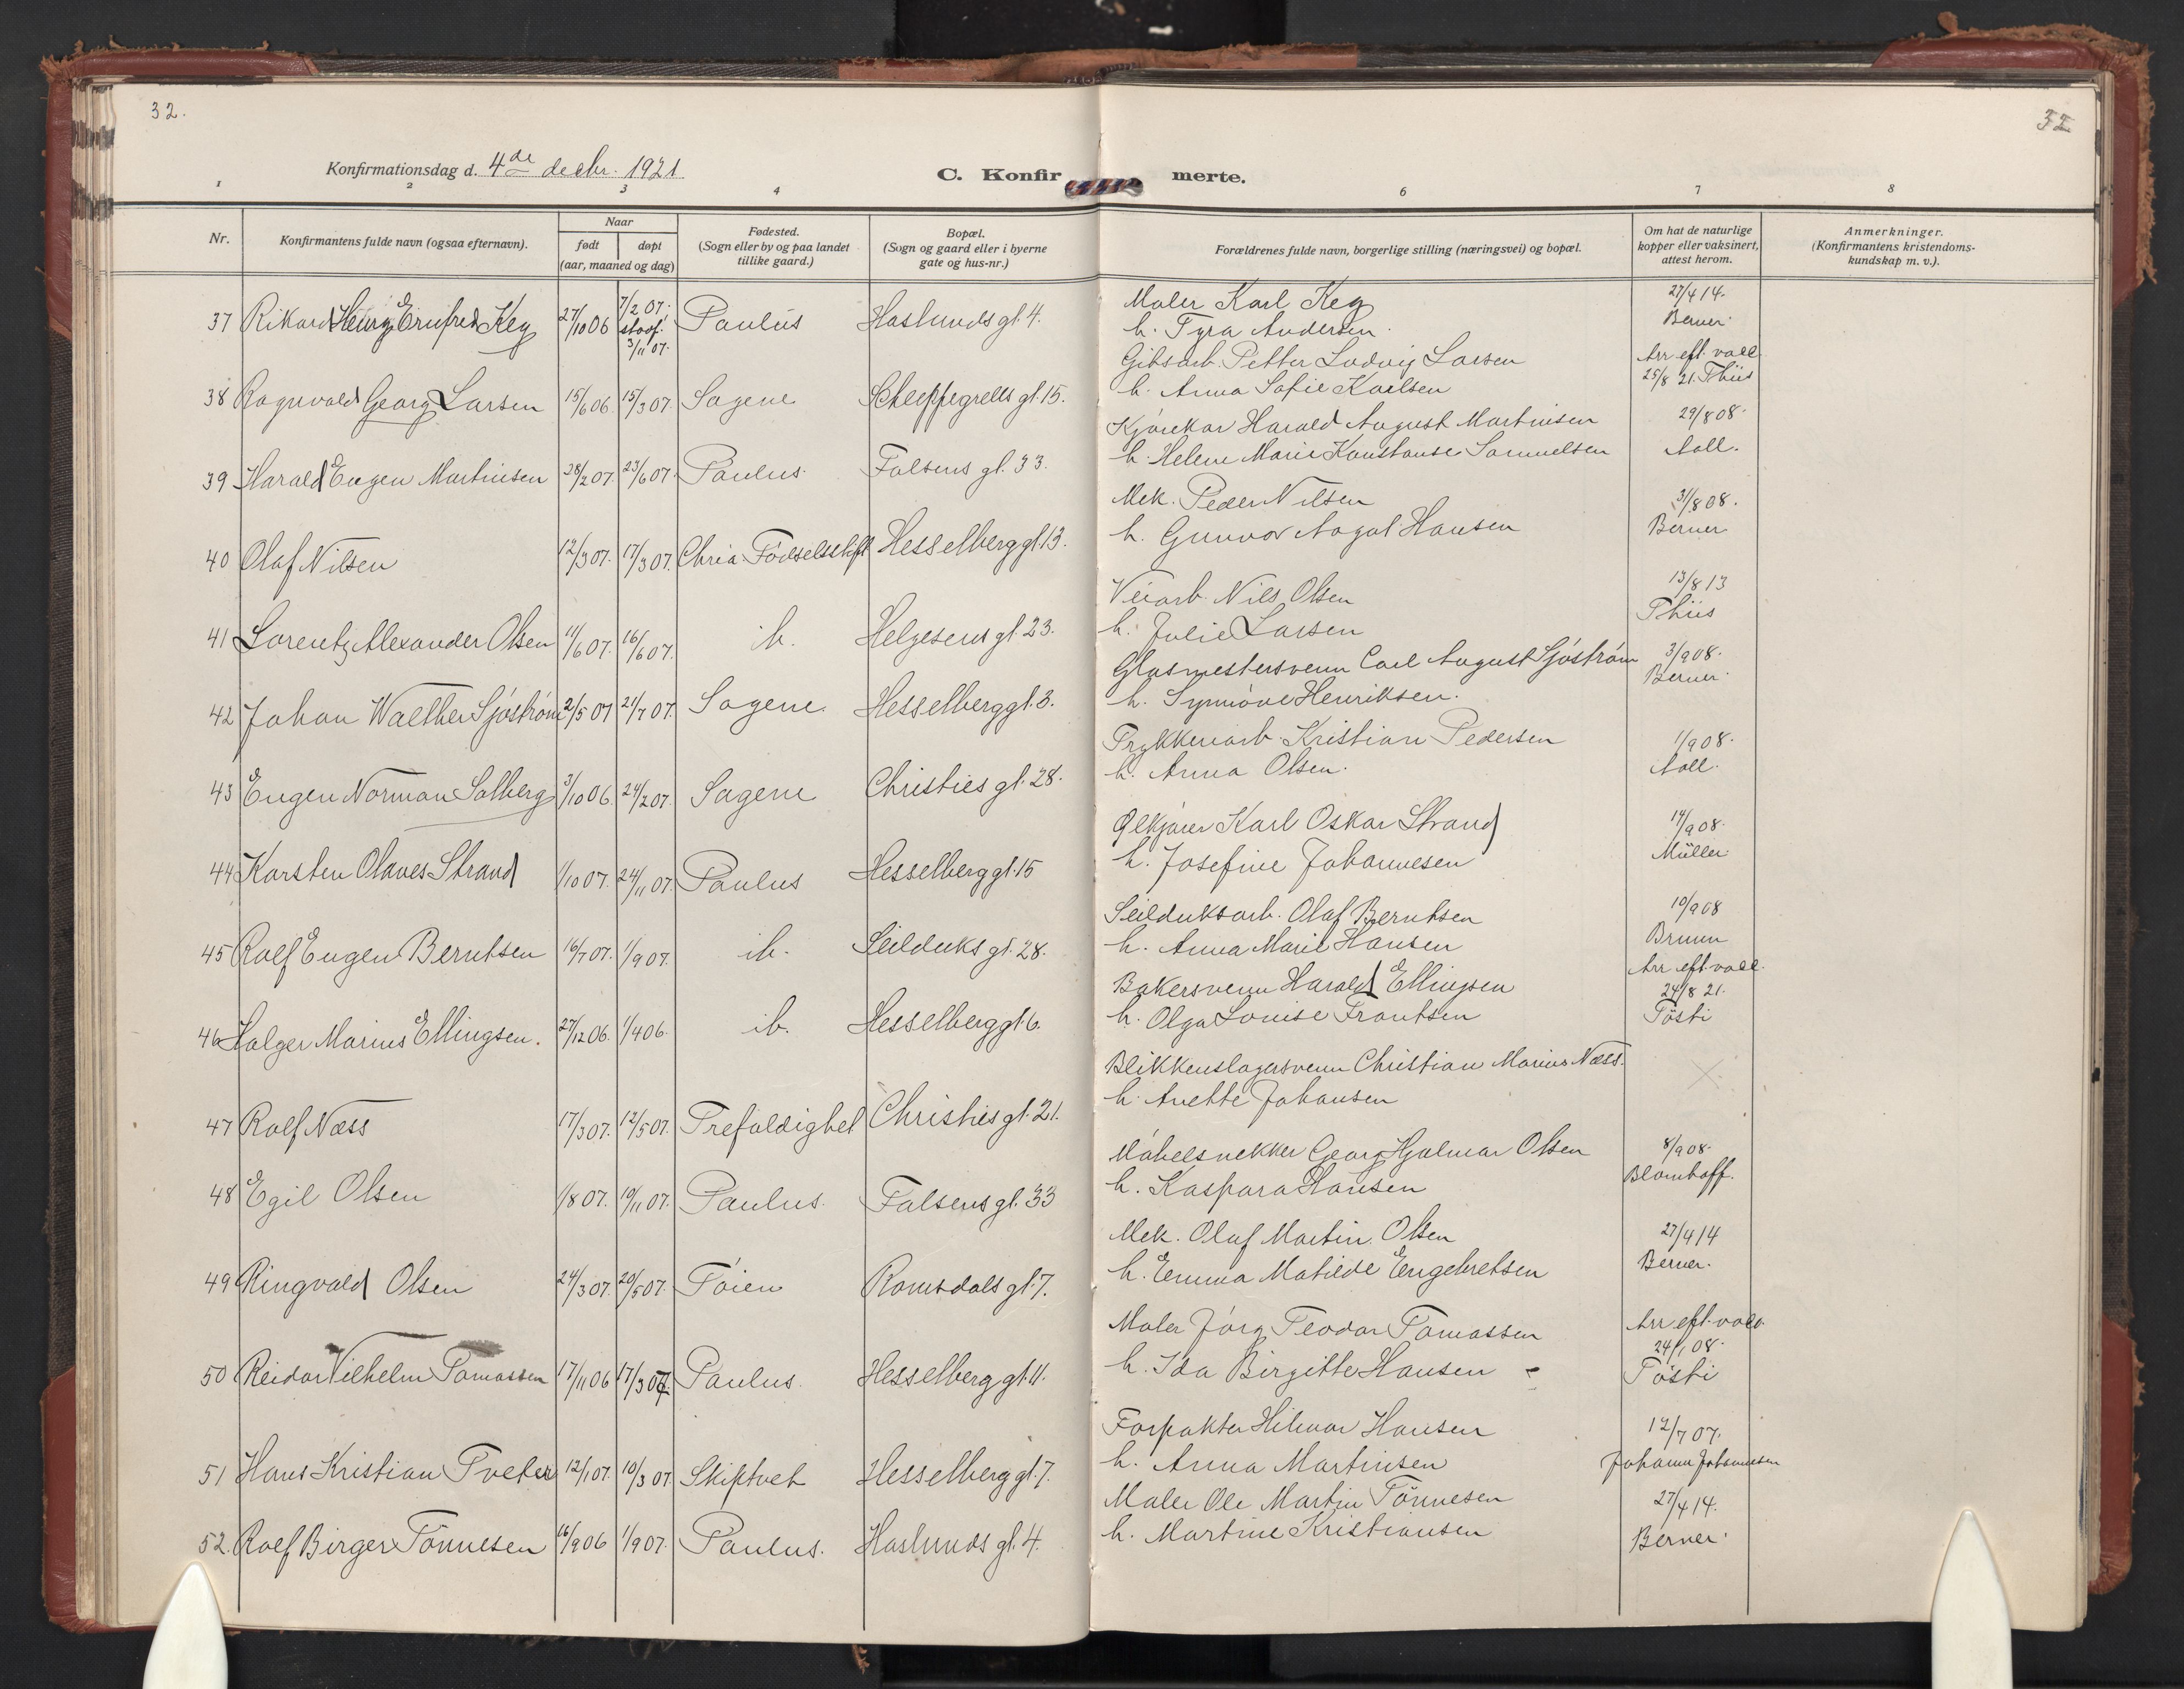 32.
32
Konfirmationsdag d. 4de decbr. 1921
C. Konfirmerte.
1 2 3 4 6 7 8
Nr.
Konfirmantens fulde navn (ogsaa efternavn).
Naar
født døpt
(aar, maaned og dag)
Fødested.
(Sogn eller by og paa landet
tillike gaard.)
Bopæl.
(Sogn og gaard eller i byerne
gate og hus-nr.)
Forældrenes fulde navn, borgerlige stilling (næringsvei) og bopæl.
Om hat de naturlige
kopper eller vaksinert,
attest herom.
Anmerkninger.
(Konfirmantens kristendoms-
kundskap m. v.).
37 Rikard Henry Ernfred Keg 27/10 06 7/2 07. stadf. 3/11 07. Paulus Haslunds gt. 4.
Maler Karl Keg
h. Tyra Andersen.
27/4 14.
Berner
38 Ragnvald Georg Larsen 15/6 06. 15/3 07. Sagene Schleppegrells gt. 15.
Gibsarb. Petter Ludvig Larsen
h. Anna Sofie Karlsen
Arr eft. vacc.
25/8 21. Thiis
39 Harald Eugen Martinsen 28/2 07. 23/6 07. Paulus. Falsens gt. 33.
Kjørekar Harald August Martinsen
h. Helene Marie Konstanse Samuelsen
29/8 08.
Aall.
40 Olaf Nilsen 12/3 07. 17/3 07. Chria. Fødselsstift Hesselberg gt. 13.
Mek. Peder Nilsen
h. Gunvor Aagot Hansen
31/8 08.
Berner
41 Lorentz Alexander Olsen 11/6 07. 16/6 07. ib. Helgesens gt. 23.
Veiarb. Nils Olsen
h. Julie Larsen
13/8 13
Thiis
42 Johan Walther Sjöström 2/5 07 21/7 07. Sagene Hesselberg gt. 3.
Glasmestersvenn Carl August Sjöström
h. Synnøve Henriksen.
3/9 08.
Berner.
43 Eugen Norman Solberg 3/10 06. 24/2 07. Sagene Christies gt. 28.
Trykkeriarb. Kristian Pedersen
h. Anna Olsen.
1/9 08.
Aall.
44 Karsten Olaves Strand 1/10 07. 24/11 07. Paulus Hesselberg gt. 15
Ølkjører Karl Oskar Strand
h. Josefine Johannesen
14/9 08.
Müller.
45 Rolf Eugen Berntsen 16/7 07. 1/9 07. ib. Seilduks gt. 28.
Seilduksarb. Olaf Berntsen
h. Anna Marie Hansen
10/9 08
Bruun
46 Holger Marius Ellingsen. 27/12 06. 1/4 06. ib. Hesselberg gt. 6.
Bakersvenn Harald Ellingsen
h. Olga Louise Frantsen
Arr eft. vacc.
24/8 21.
Tösti
47 Rolf Næss 17/3 07. 12/5 07. Trefoldighet Christies gt. 21.
Blikkenslagersvenn Christian Marius Næss.
h. Anette Johansen
48 Egil Olsen 1/8 07. 10/11 07. Paulus. Falsens gt. 33
Møbelsnekker Georg Hjalmar Olsen
h. Kaspara Hansen
8/9 08.
Blomhoff.
49 Ringvald Olsen 24/3 07. 20/5 07. Tøien Romsdals gt. 7.
Mek. Olaf Martin Olsen
h. Emma Matilde Engebretsen
27/4 14
Berner.
50 Reidar Vilhelm Tomassen 17/11 06 17/3 07. Paulus. Hesselberg gt. 11.
Maler Jörg Teodor Tomassen
h. Ida Birgitte Hansen
Arr. eft. vacc.
24/1 08.
Tösti
51 Hans Kristian Tveter 12/1 07. 10/3 07. Skiptvet Hesselberg gt. 7.
Forpakter Hilmar Hansen
h. Anna Martinsen
12/7 07.
Johanne Johannesen
52. Rolf Birger Tönnesen 16/9 06 1/9 07. Paulus. Haslunds gt. 4.
Maler Ole Martin Tönnesen
h. Martine Kristiansen
27/4 14.
Berner.